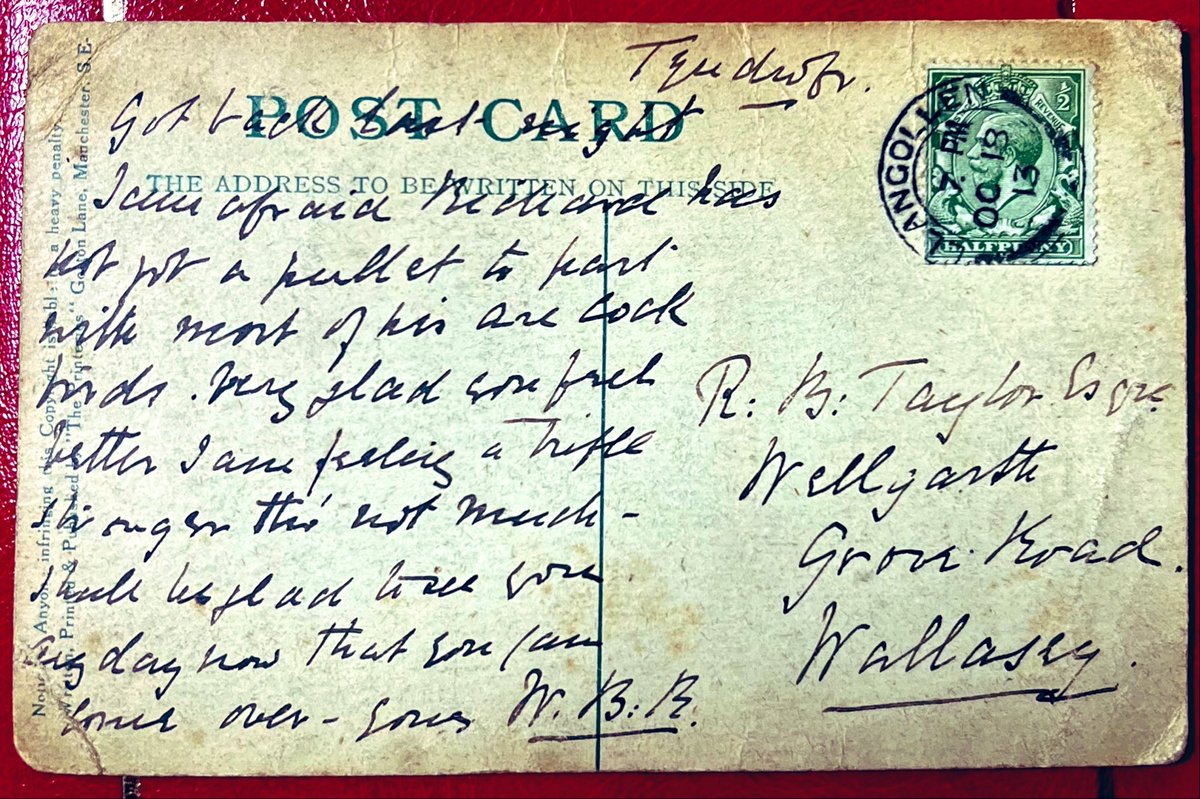 Tyndwfr.
POST CARD
THE ADDRESS TO BE WRITTEN ON THIS SIDE
Got back last night
I am afraid Richard has
not got a pullet to part
with most of his are cock
birds. Very glad you feel
better I am feeling a trifle
stronger tho' not much -
shall be glad to see you
any day now that you can
come over - yours W. B. R.
R. B. Taylor Esqre.
Wellgarth
Grove Road.
Wallasey.
LANGOLLEN
7. PM
OC 18
13
REVENUE
½
HALFPENNY
Anyone infringing this Copyright is a heavy penalty.
Printed & Published "The Printeries" Gordon Lane, Manchester S.E.